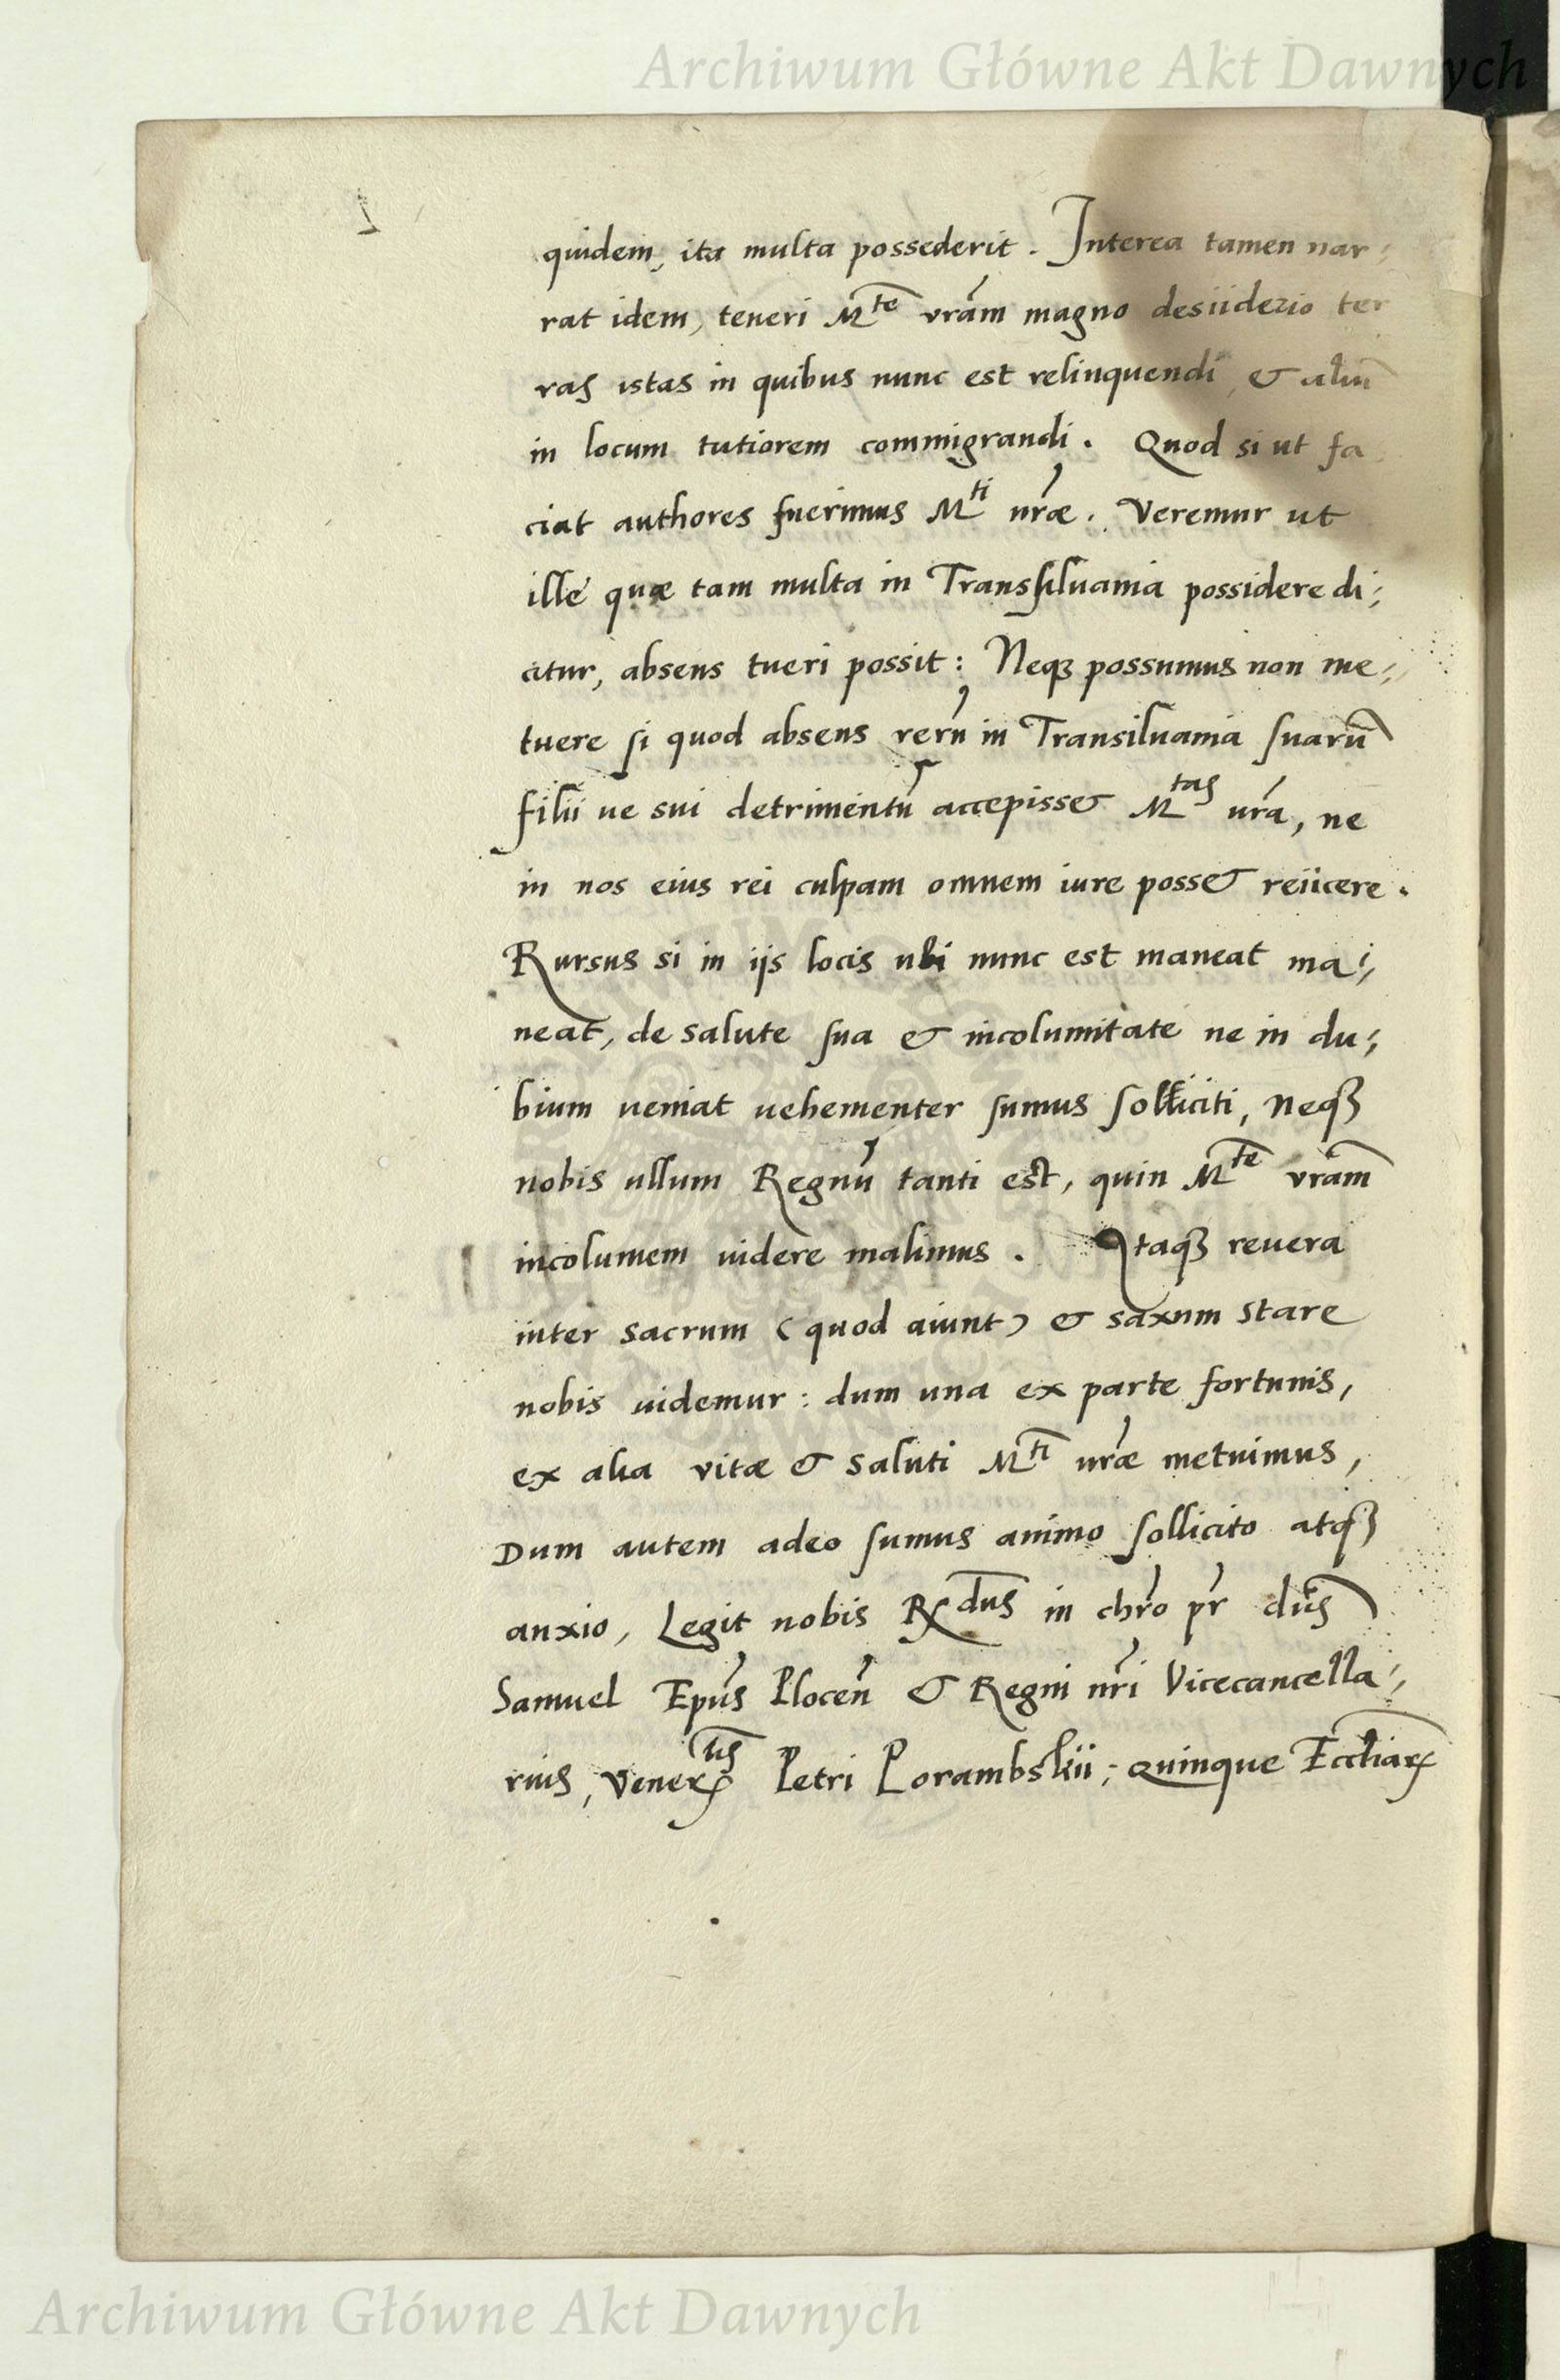 Archiwum Główne Akt Dawnych
quidem, ita multa possederit. Interea tamen nar;
rat idem, teneri M^te vrãm magno desiiderio ter
ras istas in quibus nunc est relinquendi, & aliũ
in locum tutiorem commigrandi. Quod si ut fa
ciat authores fuerimus M^ti uræ. Veremur ut
ille quæ tam multa in Transsiluania possidere di;
citur, absens tueri possit: Neqꝫ possumus non me;
tuere si quod absens rerũ in Transiluania suarũ
filii ue sui detrimentũ accepisset M^tas urã, ne
in nos eius rei culpam omnem iure posset reiicere.
Rursus si in ijs locis ubi nunc est maneat ma;
neat, de salute sua & incolumitate ne in du;
bium veniat uehementer sumus solliciti, neqꝫ
nobis ullum Regnũ tanti est, quin M^te vrãm
incolumem uidere malimus. Itaqꝫ reuera
inter sacrum (quod aiunt) & saxum stare
nobis uidemur: dum una ex parte fortunis,
ex alia vitæ & saluti M^ti uræ metuimus,
Dum autem adeo sumus animo sollicito atqꝫ
anxio, Legit nobis R^dus in chro pr dũs
Samuel Epũs Ploceñ & Regni nri Vicecancella;
rius, Vener^lis Petri Porambskii; quinque Eccliaꝝ
Archiwum Główne Akt Dawnych